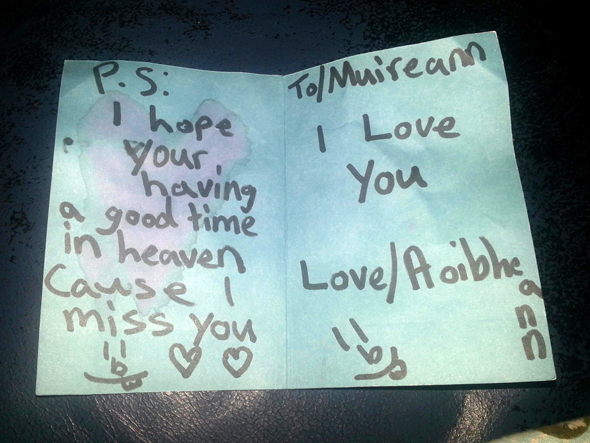 P.S:
I hope
your
having
a good time
in heaven
Cause I
miss you
To/Muireann
I Love
You
Love/Aoibheann